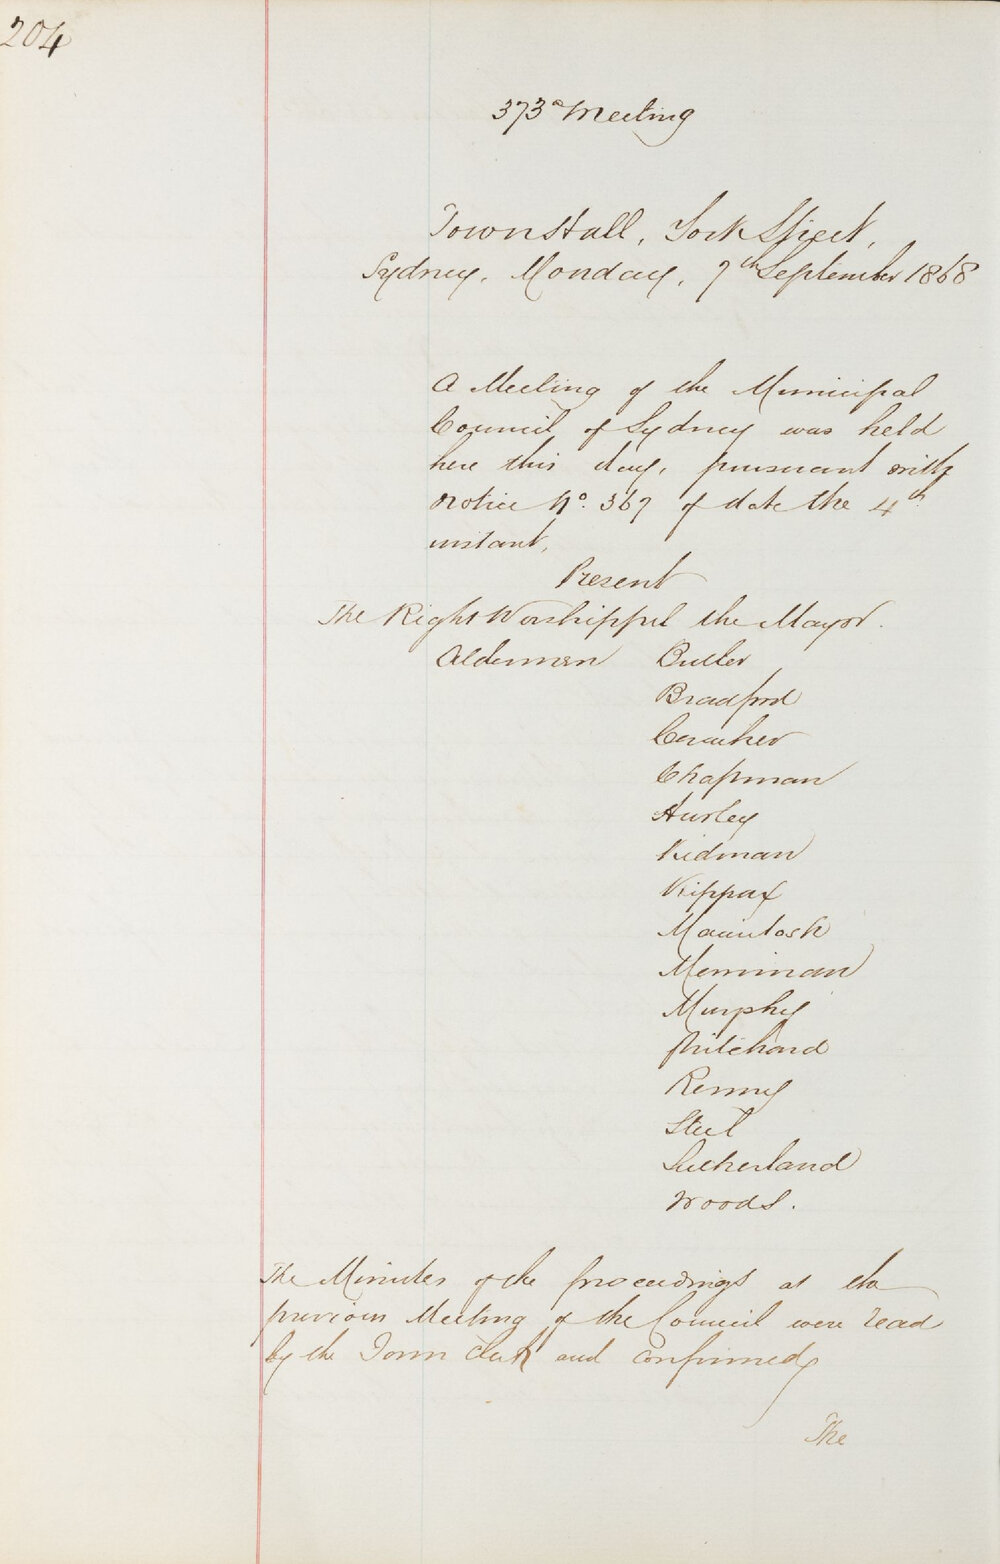 204
373d Meeting
Town Hall, York Street,
Sydney, Monday, 7th September 1868
A Meeting of the Municipal
Council of Sydney was held
here this day, pursuant with
notice No. 367 of date the 4th
instant,
Present
The Right Worshipful the Mayor.
Aldermen Butler
Bradford
Caraher
Chapman
Hurley
Kidman
Kippax
Macintosh
Merriman
Murphy
Pritchard
Renny
Steel
Sutherland
Woods.
The Minutes of the proceedings at the
previous Meeting of the Council were read
by the Town Clerk and confirmed
The